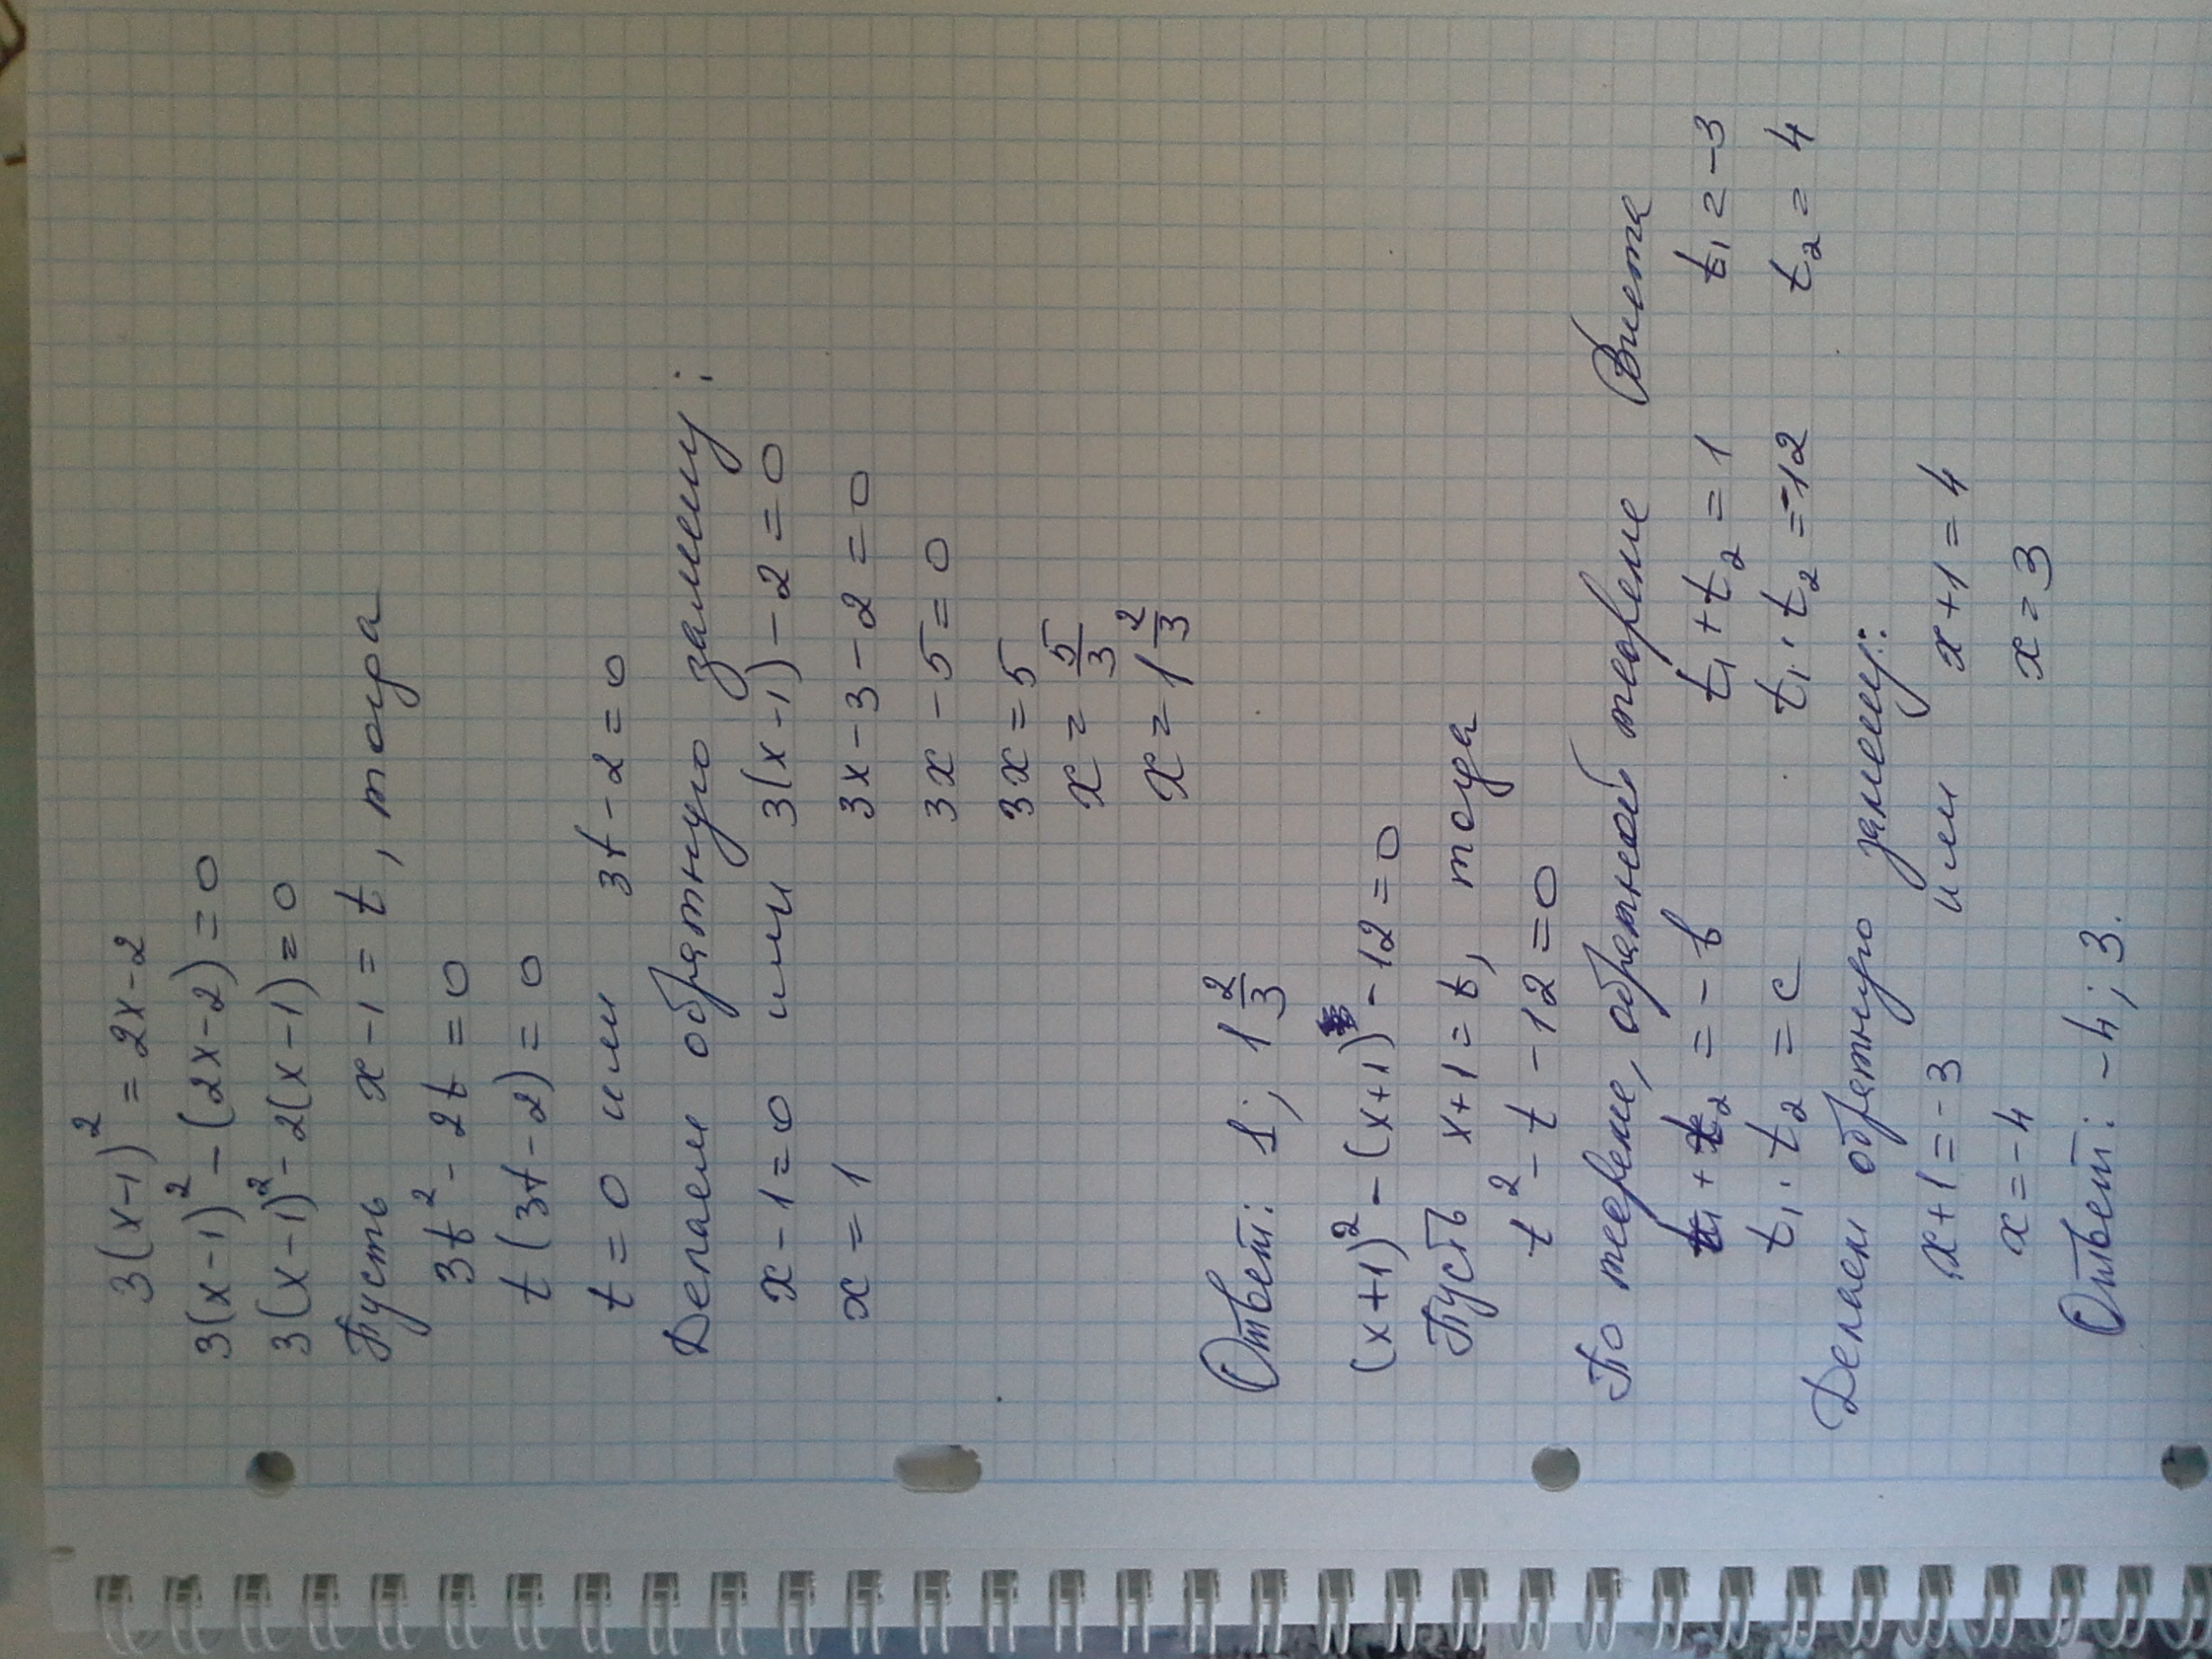 3(x-1)² = 2x-2
3(x-1)² - (2x-2) = 0
3(x-1)² - 2(x-1) = 0
Пусть x-1 = t, тогда
3t² - 2t = 0
t(3t-2) = 0
t = 0 или 3t-2 = 0
Делаем обратную замену:
x-1=0 или 3(x-1)-2=0
x = 1 3x-3-2=0
3x-5=0
3x=5
x = 5/3
x = 1 2/3
Ответ: 1; 1 2/3
(x+1)² - (x+1) - 12 = 0
Пусть x+1 = t, тогда
t² - t - 12 = 0
По теореме, обратной теореме Виета
t₁ + t₂ = -b t₁ + t₂ = 1 t₁ = -3
t₁ · t₂ = c t₁ · t₂ = -12 t₂ = 4
Делаем обратную замену:
x+1 = -3 или x+1 = 4
x = -4 x = 3
Ответ: -4; 3.